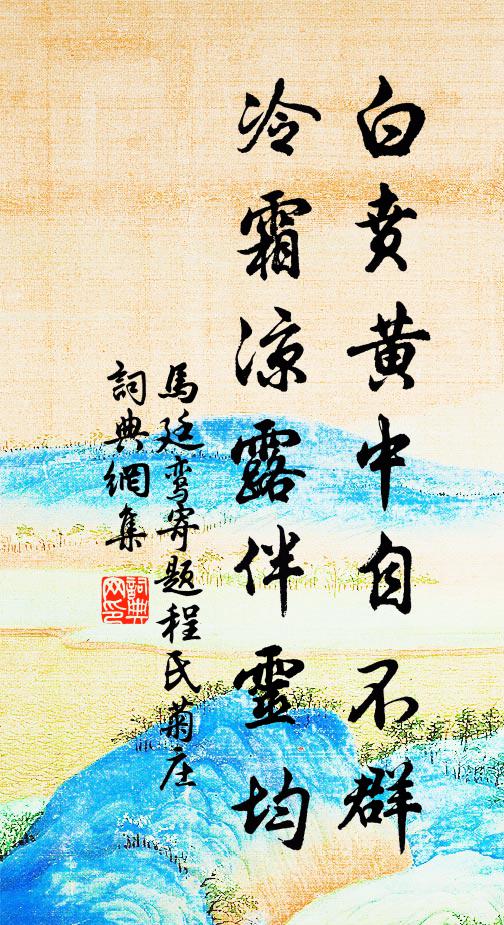 白賁黃中自不群
冷霜涼露伴靈均
馬廷鸾寄题程氏菊庄
詞典網集
詞典網印